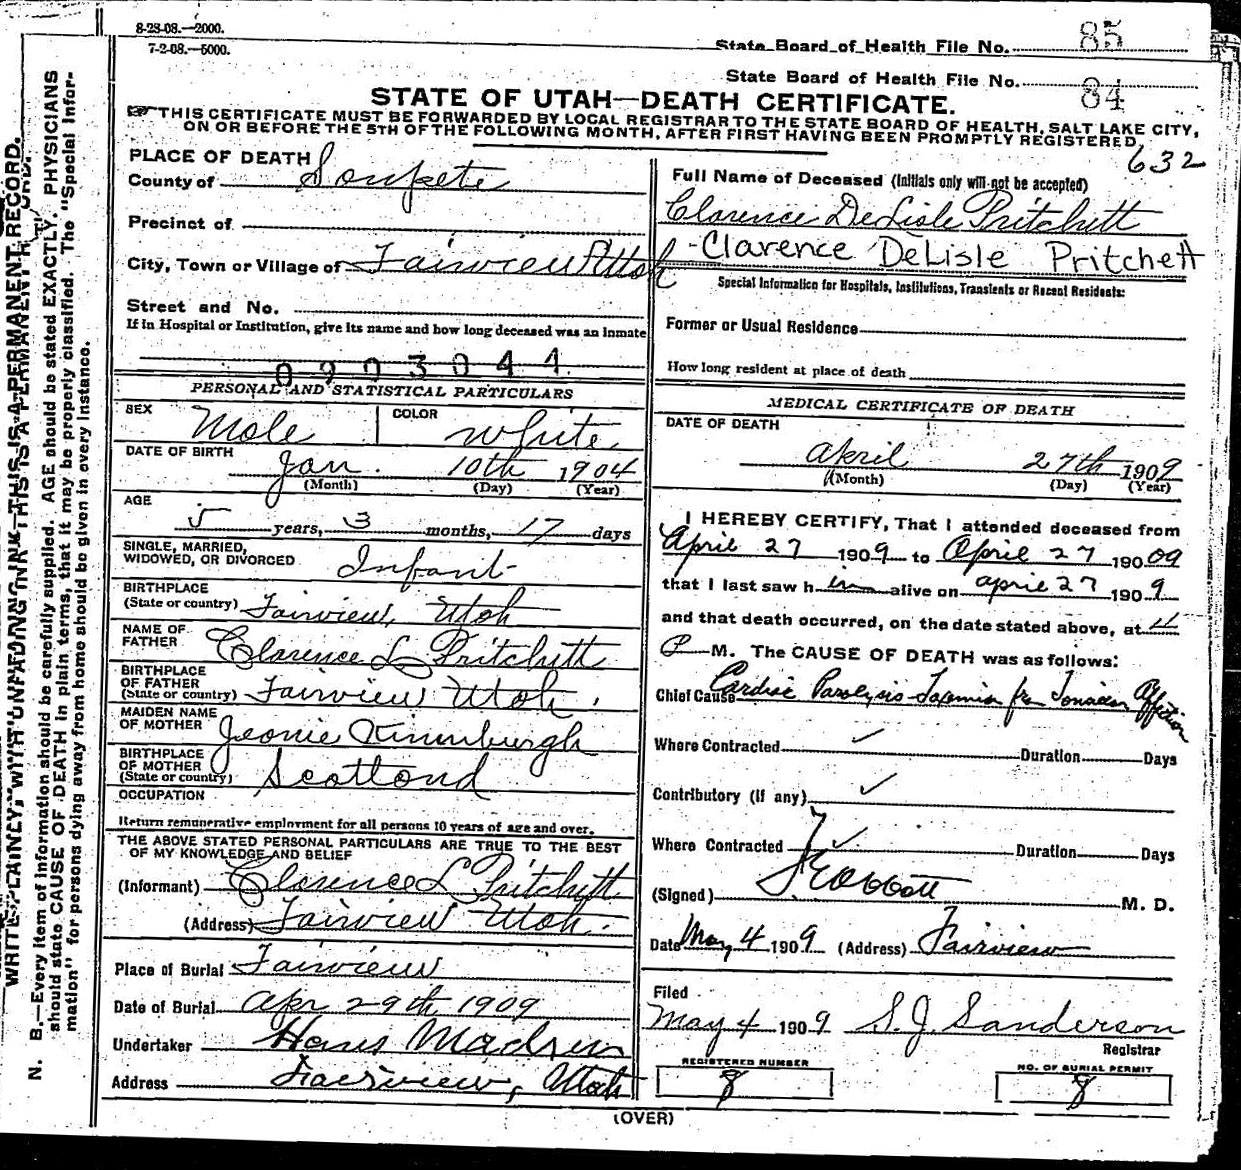 8-28-08.—2000.
7-2-08.—5000.
State Board of Health File No. 85
State Board of Health File No. 84
STATE OF UTAH—DEATH CERTIFICATE.
☞ THIS CERTIFICATE MUST BE FORWARDED BY LOCAL REGISTRAR TO THE STATE BOARD OF HEALTH, SALT LAKE CITY,
ON OR BEFORE THE 5TH OF THE FOLLOWING MONTH, AFTER FIRST HAVING BEEN PROMPTLY REGISTERED.
632
PLACE OF DEATH
County of Sanpete
Precinct of
City, Town or Village of Fairview Utah
Street and No.
If in Hospital or Institution, give its name and how long deceased was an inmate
PERSONAL AND STATISTICAL PARTICULARS
SEX Male COLOR White
DATE OF BIRTH
Jan. 10th 1904
(Month) (Day) (Year)
AGE
5 years, 3 months, 17 days
SINGLE, MARRIED,
WIDOWED, OR DIVORCED Infant
BIRTHPLACE
(State or country) Fairview, Utah
NAME OF
FATHER Clarence L Pritchett
BIRTHPLACE
OF FATHER
(State or country) Fairview Utah.
MAIDEN NAME
OF MOTHER
BIRTHPLACE
OF MOTHER
(State or country) Scotland
OCCUPATION
Return remunerative employment for all persons 10 years of age and over.
THE ABOVE STATED PERSONAL PARTICULARS ARE TRUE TO THE BEST
OF MY KNOWLEDGE AND BELIEF
(Informant) Clarence L Pritchett
(Address) Fairview Utah.
Place of Burial Fairview
Date of Burial Apr 29th 1909
Undertaker Hans Madsen
Address Fairview, Utah
Full Name of Deceased (Initials only will not be accepted)
Clarence DeLisle Pritchett
-Clarence DeLisle Pritchett
Special Information for Hospitals, Institutions, Transients or Recent Residents:
Former or Usual Residence
How long resident at place of death
MEDICAL CERTIFICATE OF DEATH
DATE OF DEATH
April 27th 1909
(Month) (Day) (Year)
I HEREBY CERTIFY, That I attended deceased from
April 27 1909 to April 27 190 09
that I last saw h im alive on April 27 1909
and that death occurred, on the date stated above, at 11
P M. The CAUSE OF DEATH was as follows:
Chief Cause Cardiac Paralysis-Toxemia
Where Contracted Duration Days
Contributory (if any)
Where Contracted Duration Days
(Signed) M. D.
Date May 4 1909 (Address) Fairview
Filed
May 4 1909 S. J. Sanderson
Registrar
REGISTERED NUMBER 8
NO. OF BURIAL PERMIT 8
(OVER)
WRITE PLAINLY WITH UNFADING INK—THIS IS A PERMANENT RECORD.
N. B.—Every item of information should be carefully supplied. AGE should be stated EXACTLY. PHYSICIANS
should state CAUSE OF DEATH in plain terms, that it may be properly classified. The "Special Infor-
mation" for persons dying away from home should be given in every instance.